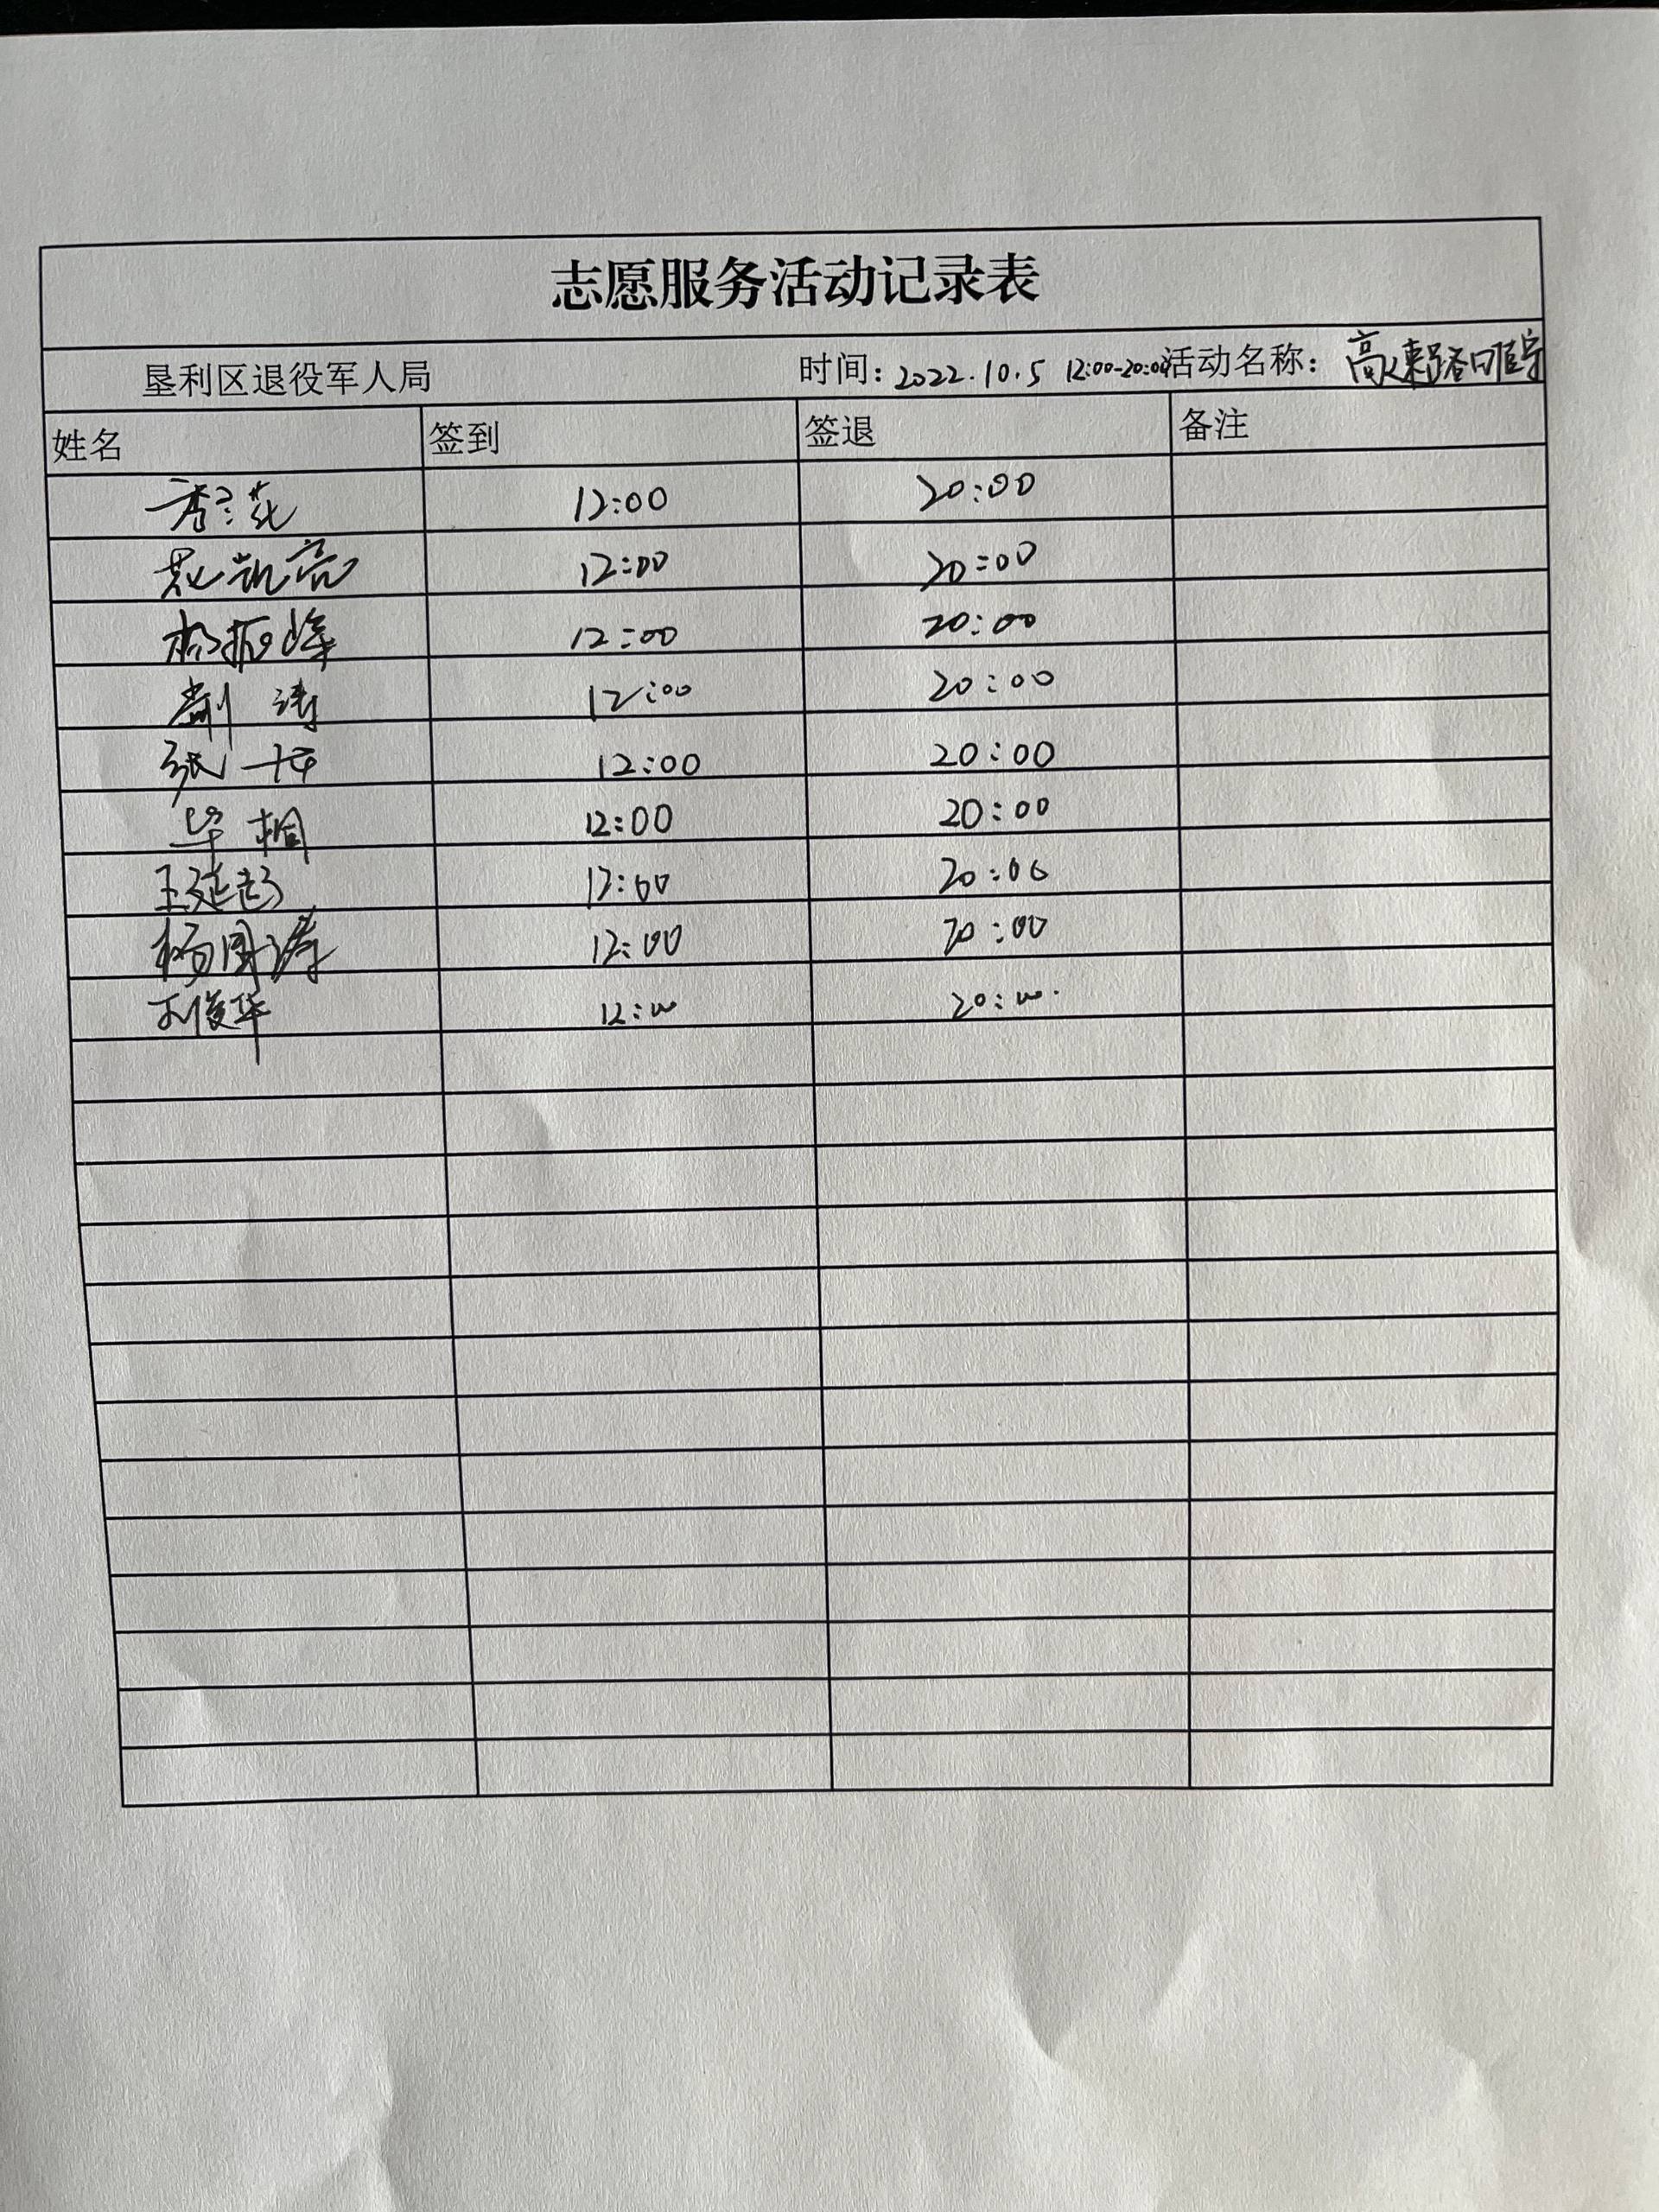 志愿服务活动记录表
垦利区退役军人局 时间：2022.10.5 12:00-20:00 活动名称：高速路口值守
姓名 签到 签退 备注
12:00 20:00
范凯亮 12:00 20:00
杨振峰 12:00 20:00
涛 12:00 20:00
张 12:00 20:00
毕桐 12:00 20:00
王延彭 12:00 20:00
杨国涛 12:00 20:00
俊华 12:00 20:00.